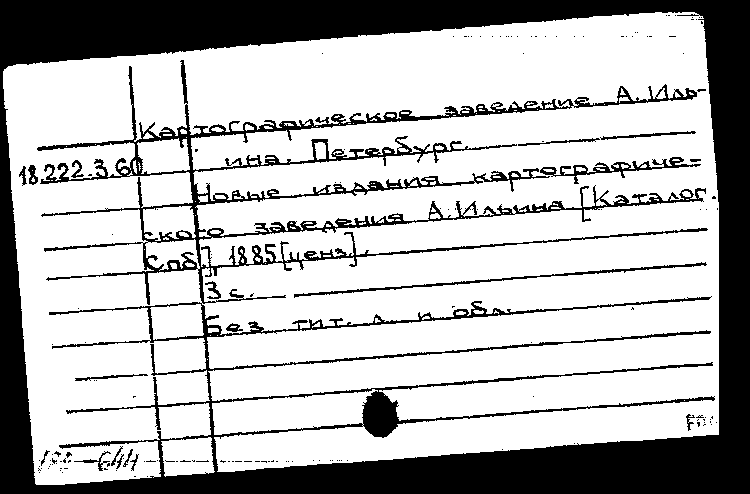 Картографическое заведение А. Иль-
18.222.3.60 ина. Петербург.
Новые издания картографиче=
ского заведения А. Ильина [Каталог.
Спб.], 1885 [ценз].
3 с.
Без тит. л. и обл.
-644